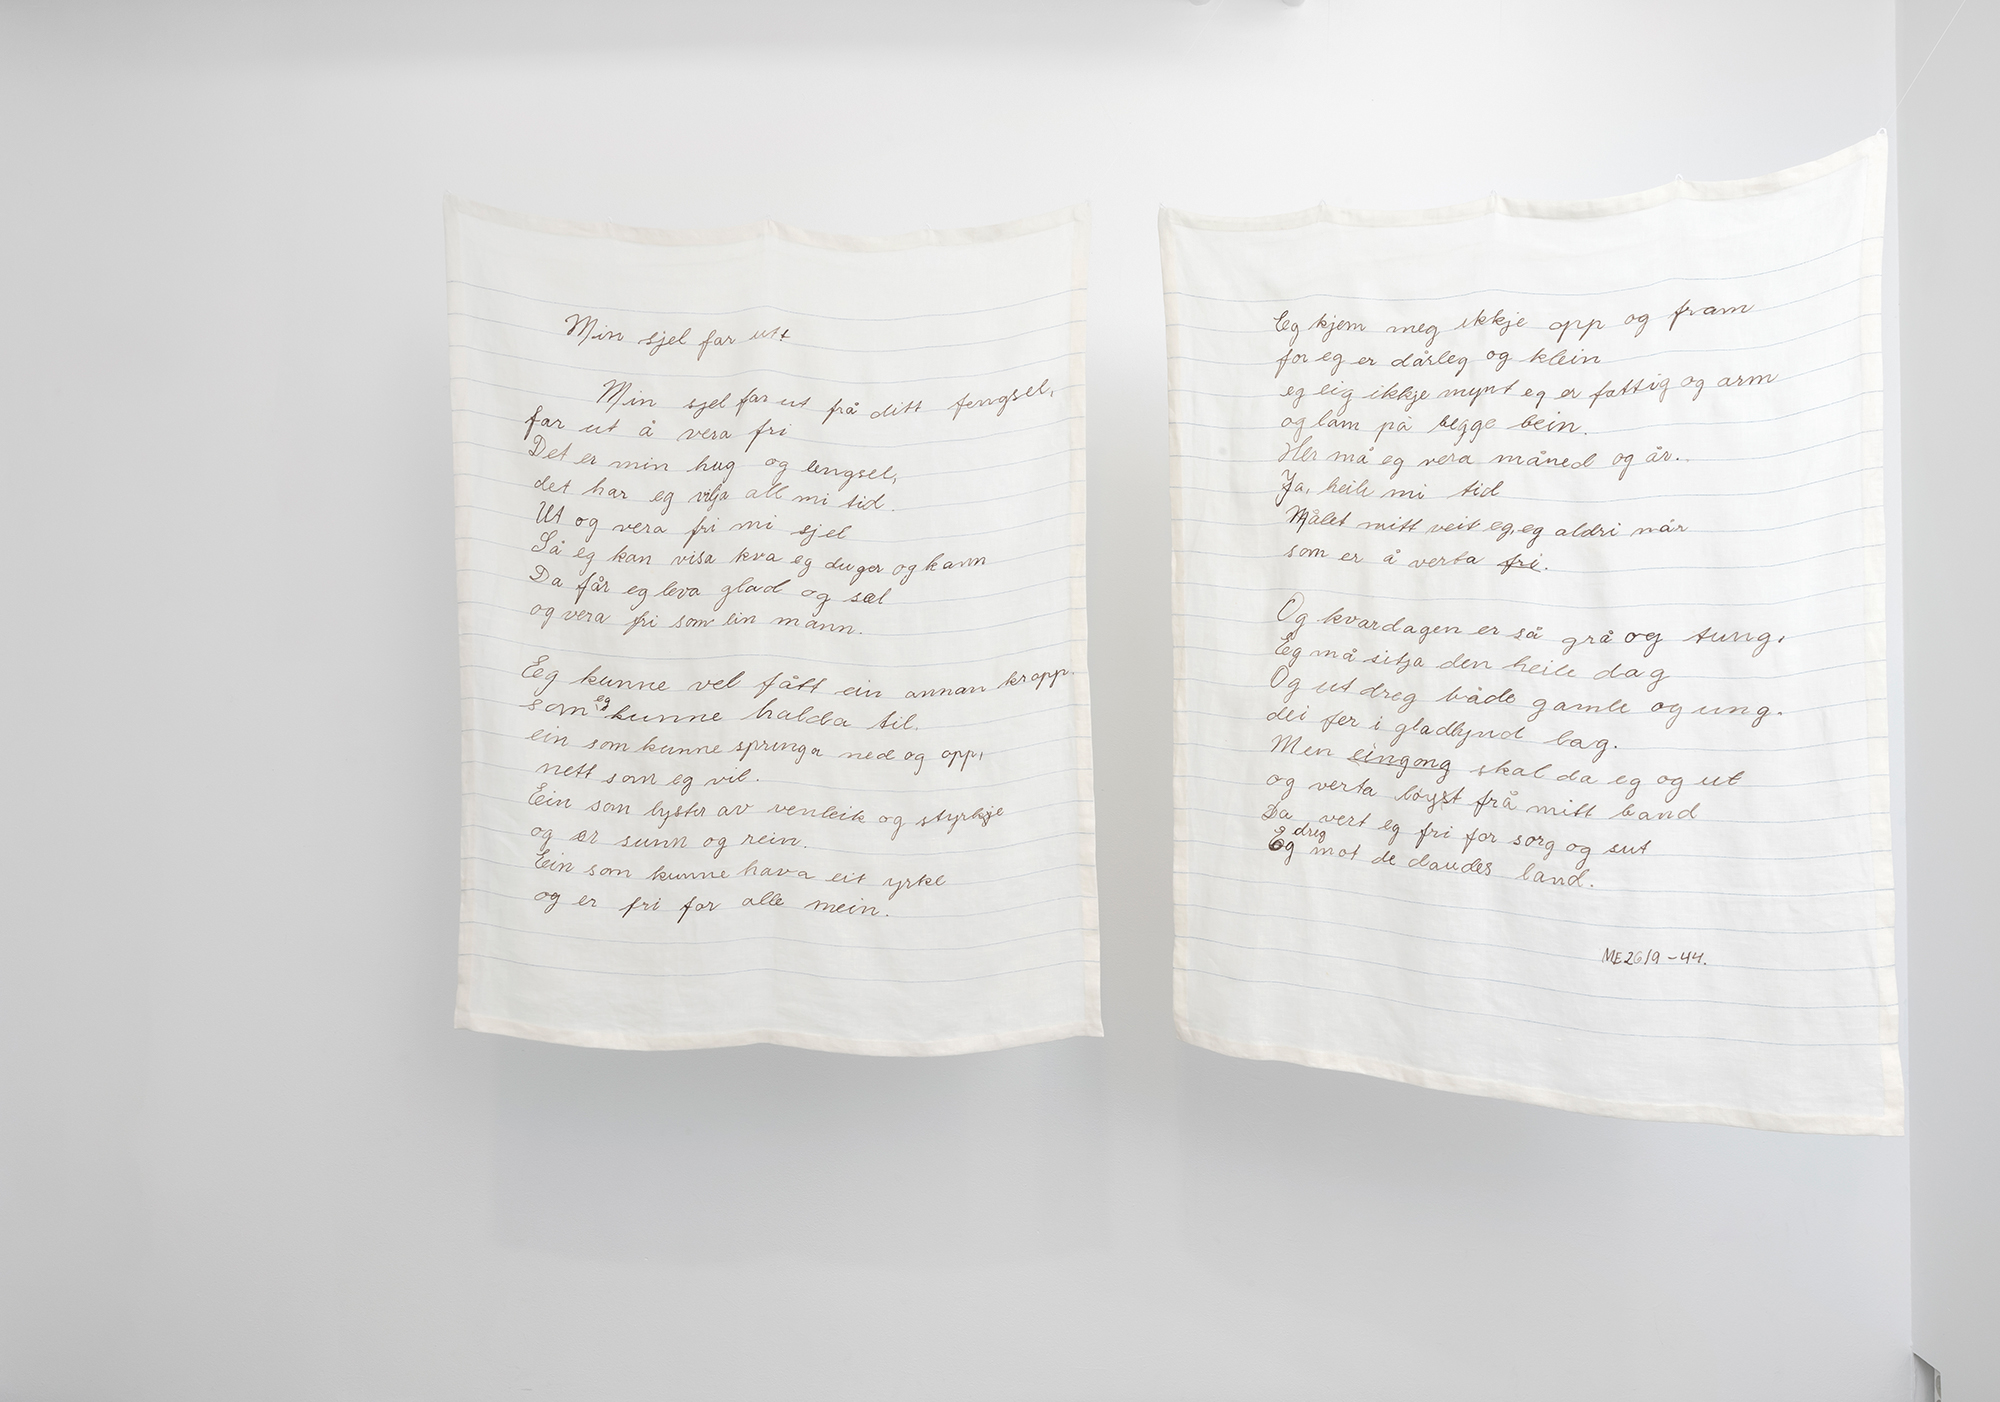 Min sjel far ut!
Min sjel far ut frå ditt fengsel,
far ut å vera fri
Det er min hug og lengsel,
det har eg vilja all mi tid.
Ut og vera fri mi sjel
Så eg kan visa kva eg duger og kann
Da får eg leva glad og sæl
og vera fri som ein mann.
Eeg kunne vel fått ein annan kropp.
som eg kunne halda til.
ein som kunne springa ned og opp,
nett som eg vil.
Ein som lyster av venleik og styrkje
og er sunn og rein.
Ein som kunne hava eit yrke
og er fri for alle mein.
Eg kjem meg ikkje opp og fram
for eg er dårleg og klein
eg eig ikkje mynt eg er fattig og arm
og lam på begge bein.
Her må eg vera måned og år..
Ja, heile mi tid
Målet mitt veit eg, eg aldri når
som er å verta fri.
Og kvardagen er så grå og tung,
Eg må sitja den heile dag
Og ut dreg både gamle og ung.
dei fer i gladlynd lag.
Men eingong skal da eg og ut
og verta løyst frå mitt band
Da vert eg fri for sorg og sut
Eg dreg mot de daudes land.
ME 26/9-44.